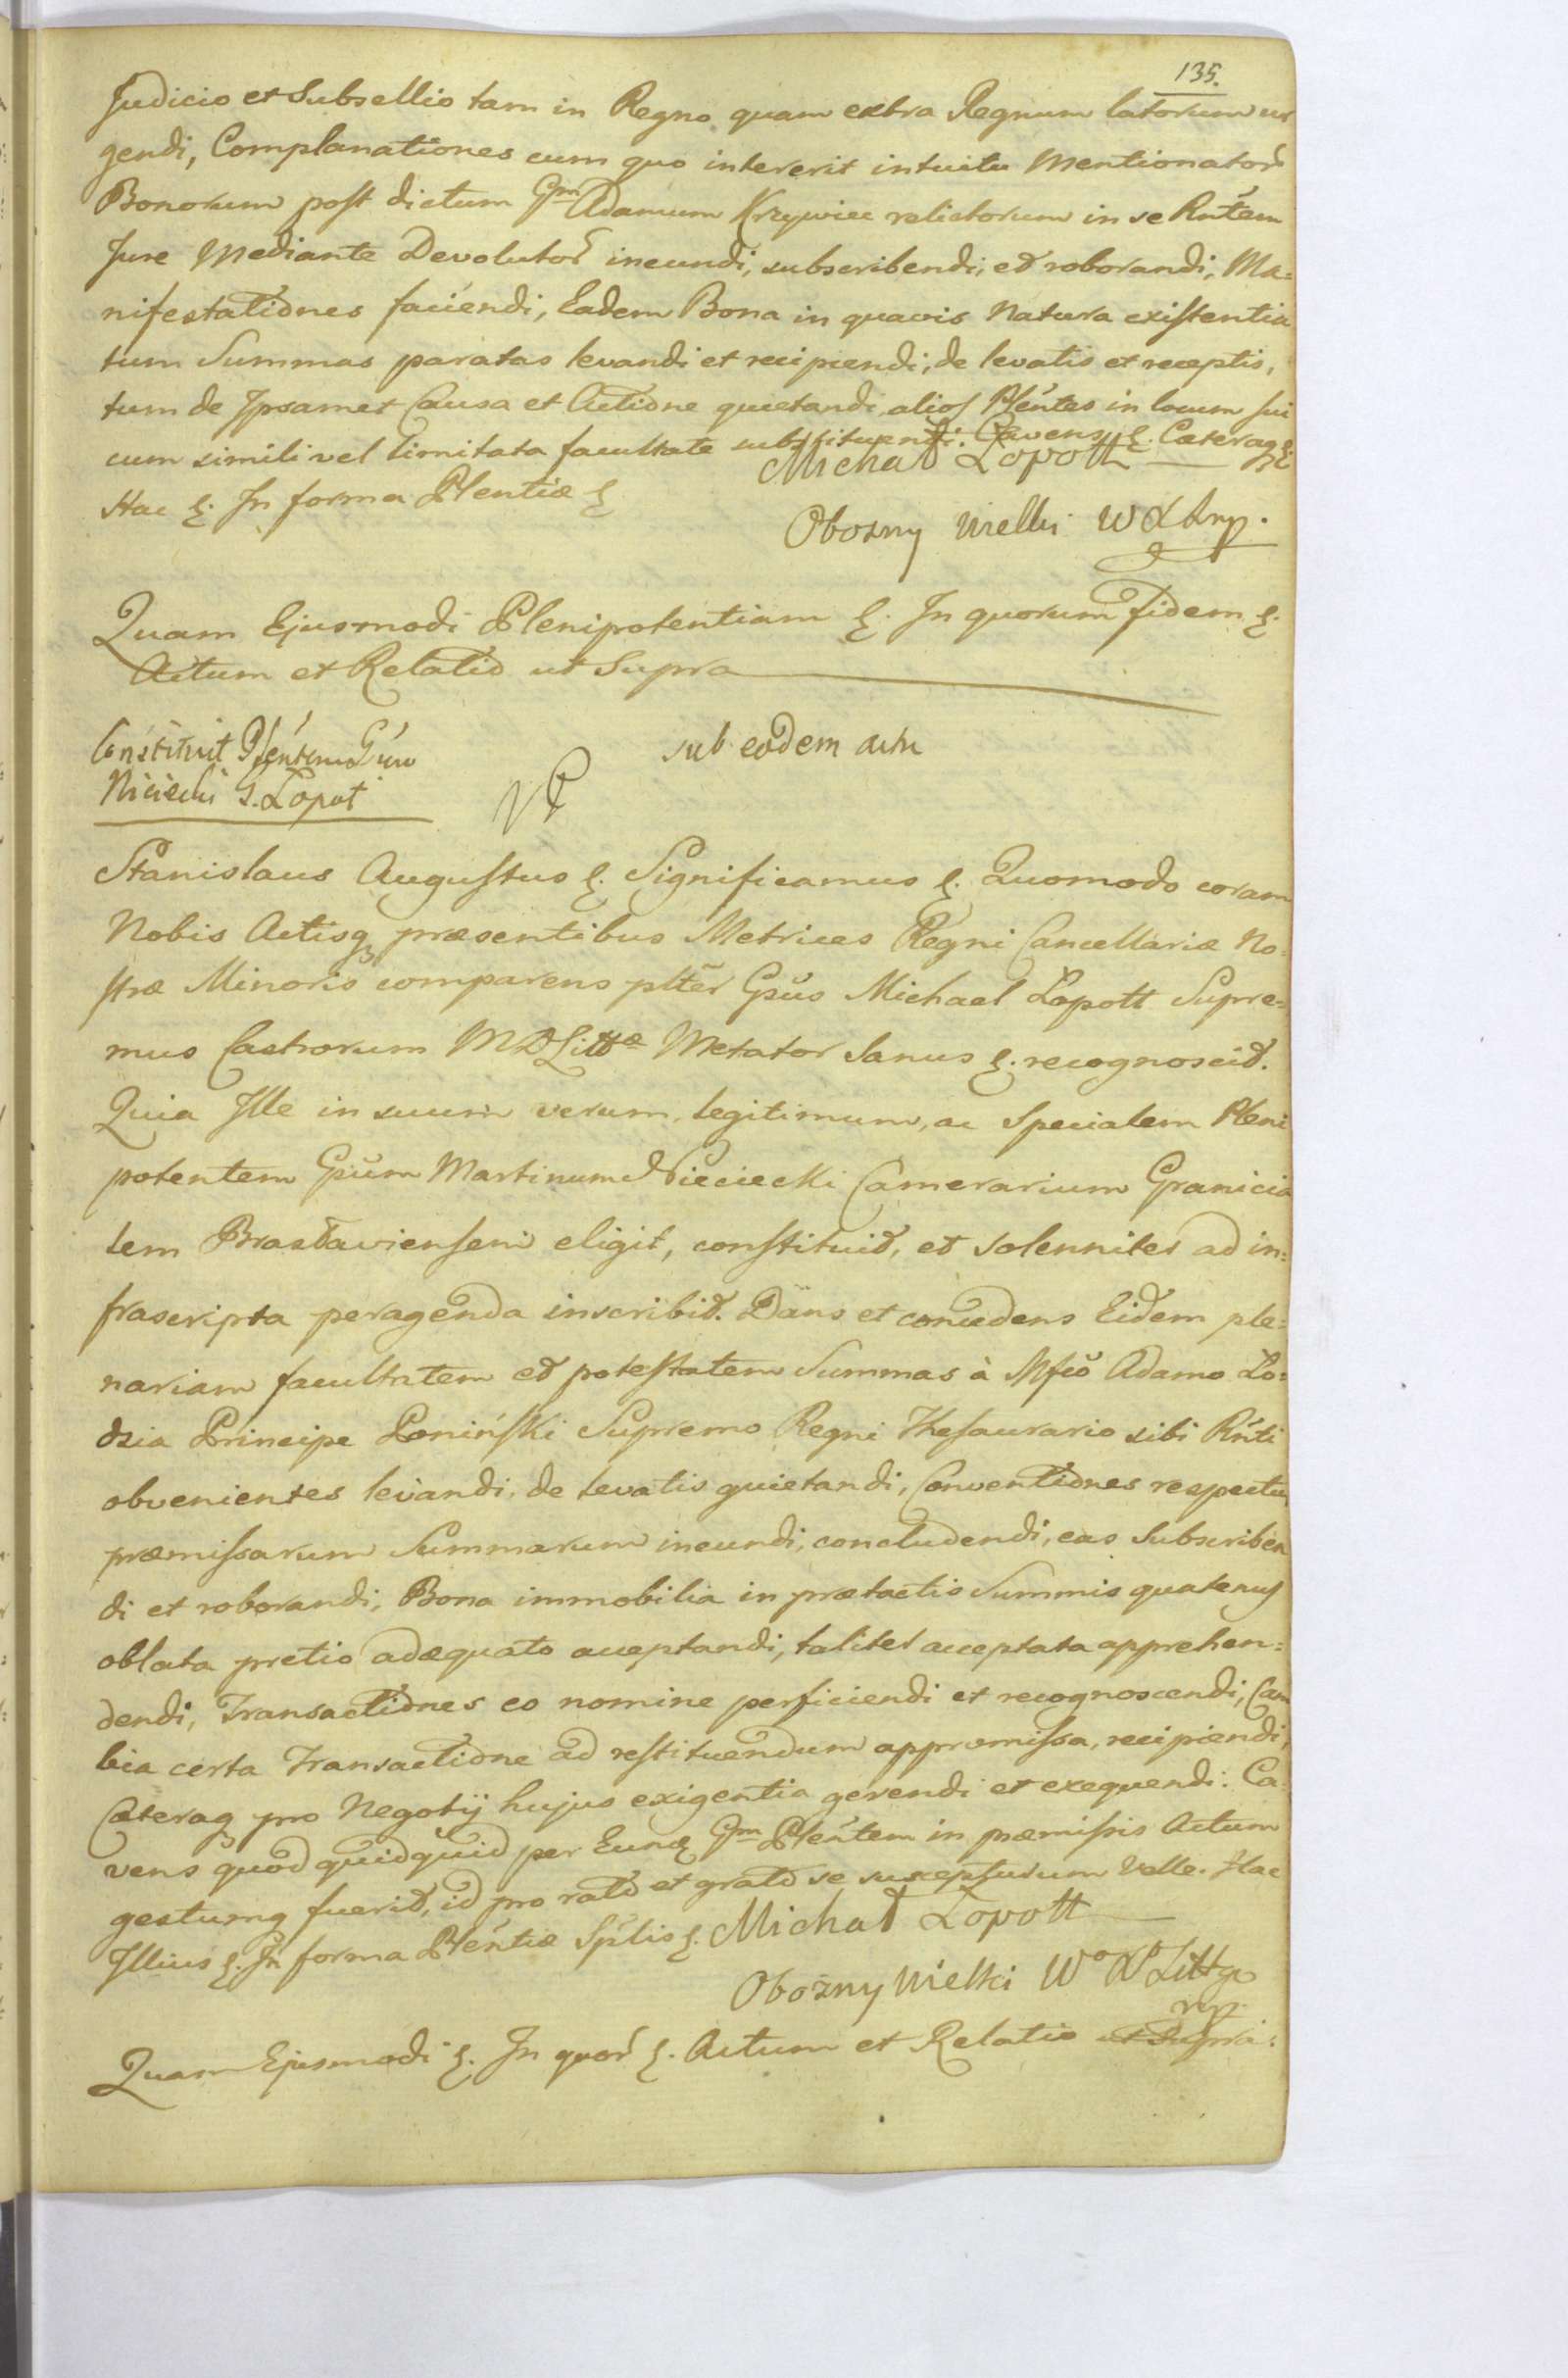 135.
Judicio et Subsellio tam in Regno quam extra Regnum latorum ur
gendi, Complanationes cum quo intererit intuitu Mentionator
Bonorum post dictum Gm Adamum Krzywiec relictorum in se Rńtem
Jure Mediante Devolutor ineundi, subscribendi, et roborandi, Ma=
nifestationes faciendi, Eadem Bona in quavis Natura existentia
tum Summas paratas levandi et recipiendi, de levatis et receptis,
tum de Ipsamet Causa et Actione quietandi, alios Pléntes in locum sui
cum simili vel limitata facultate substituendi. Cavens &. Caeteraq
Hac &. In forma Plentiæ &
Michał Łopott
Obozny Wielki W X L mp.
Quam Ejusmodi Plenipotentiam &. In quorum fidem &.
Actum et Relatio ut Supra
Constituit Pléntem Gúm
Nieciecki G. Łopot
sub eodem actu
Stanislaus Augustus &. Significamus &. Quomodo coram
Nobis Actisq præsentibus Metrices Regni Cancellariæ No=
stræ Minoris comparens pltẽr Gsũs Michael Łopott Supre=
mus Castrorum M D Littæ Metator Sanus &. recognoscit.
Quia Ille in suum verum, legitimum, ac Specialem Pleni
potentem Gsũm Martinum Nieciecki Camerarium Granicia
lem Brasłaviensem eligit, constituit, et solenniter ad in=
frascripta peragenda inscribit. Dans et concedens Eidem ple=
nariam facultatem et potestatem Summas à Mfco Adamo Ło=
dzia Principe Poniński Supremo Regni Thesaurario sibi Rńti
obvenientes levandi, de levatis quietandi, Conventiones respectu
præmissarum Summarum ineundi, concludendi, eas Subscriben
di et roborandi, Bona immobilia in prætactis Summis quatenus
oblata pretio adæquato acceptandi, taliter acceptata apprehen=
dendi, Transactiones eo nomine perficiendi et recognoscendi, Cam
bia certa Transactione ad restituendum appromissa, recipiendi,
Cæteraq pro Negotij hujus exigentia gerendi et exequendi. Ca=
vens quod quidquid per Eundem Gm Pléntem in præmissis Actum
gestumq fuerit, id pro rato et grato se suscepturum Velle. Hac
Illius &. In forma Pléntiæ Splis &. Michał Łopott
Obozny Wielki Wo X Litgo
mp.
Quam Ejusmodi &. In quor &. Actum et Relatio ut Supra.